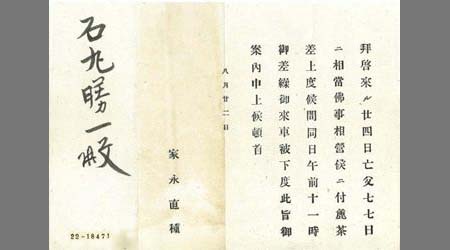 拜啓來ル廿四日亡父七七日
ニ相當佛事相營候ニ付麁茶
差上度候間同日午前十一時
御差繰御來車被下度此旨御
案內申上候頓首
八月廿二日
家永直種
石丸勝一殿
22-18471